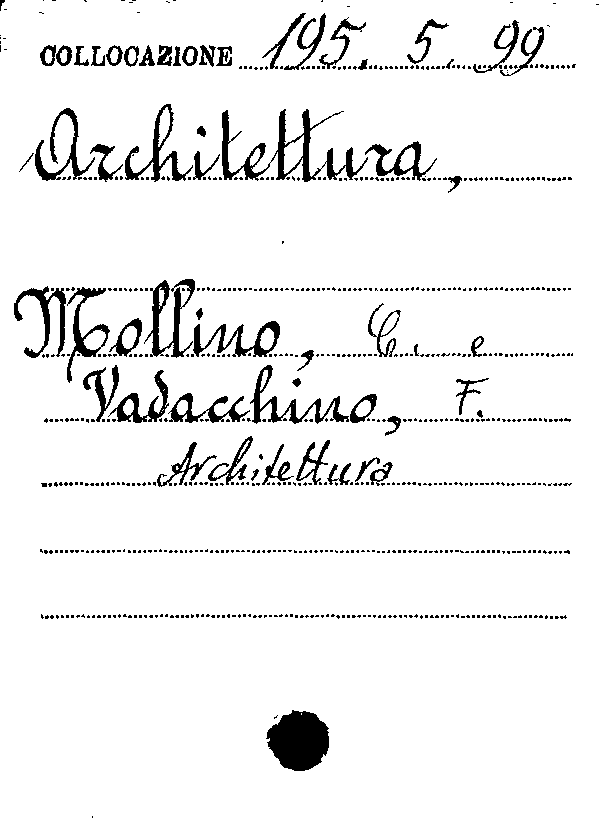 COLLOCAZIONE 195. 5. 99
Architettura,
Mollino, C. e
Vadacchino, F.
Architettura